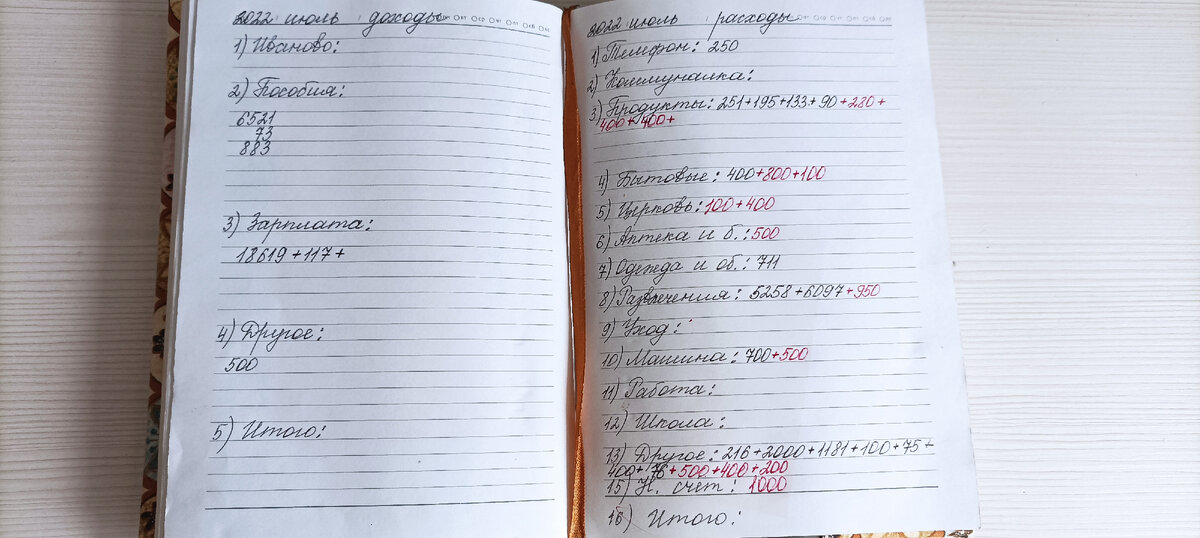 2022 июль доходы
1) Иваново:
2) Пособия:
6521
73
883
3) Зарплата:
18619 + 117 +
4) Другое:
500
5) Итого:
2022 июль расходы
1) Телефон: 250
2) Коммуналка:
3) Продукты: 251+195+133+90+280+
400+400+
4) Бытовые: 400+800+100
5) Церковь: 100+400
6) Аптека и б.: 500
7) Одежда и об.: 711
8) Развлечения: 5258+6097+950
9) Уход:
10) Машина: 700+500
11) Работа:
12) Школа:
13) Другое: 216+2000+1181+100+75+
400+76+500+400+200
15) Н. счет: 1000
16) Итого: